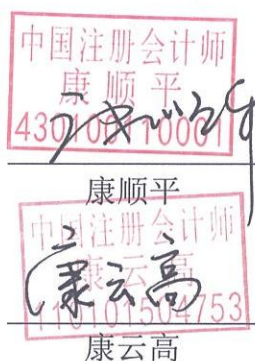 中国注册会计师
康顺平
430100110001
康顺平
中国注册会计师
康云高
110101504753
康云高